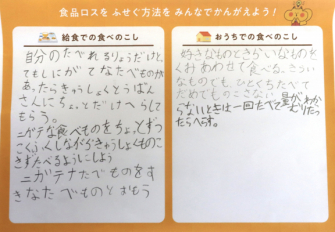 食品ロスを ふせぐ方法を みんなでかんがえよう！
給食での食べのこし
自分のたべれるりょうだけと
てもしにがてなたべものが
あったらきゅうしょくとうばん
さんにちょっとだけへらして
もらう。
ニガテな食べものをちょっとずつ
こくふくしながらきゅうしょくものこ
さずたべるようにしよう
ニガテナたべものをす
きなたべものとおもう
おうちでの食べのこし
好きなものときらいなものを
くみあわせて食べる。きらい
なものでも、ひとくちたべて
だめでものこさない
らないときは一回たべて
たらへらす。